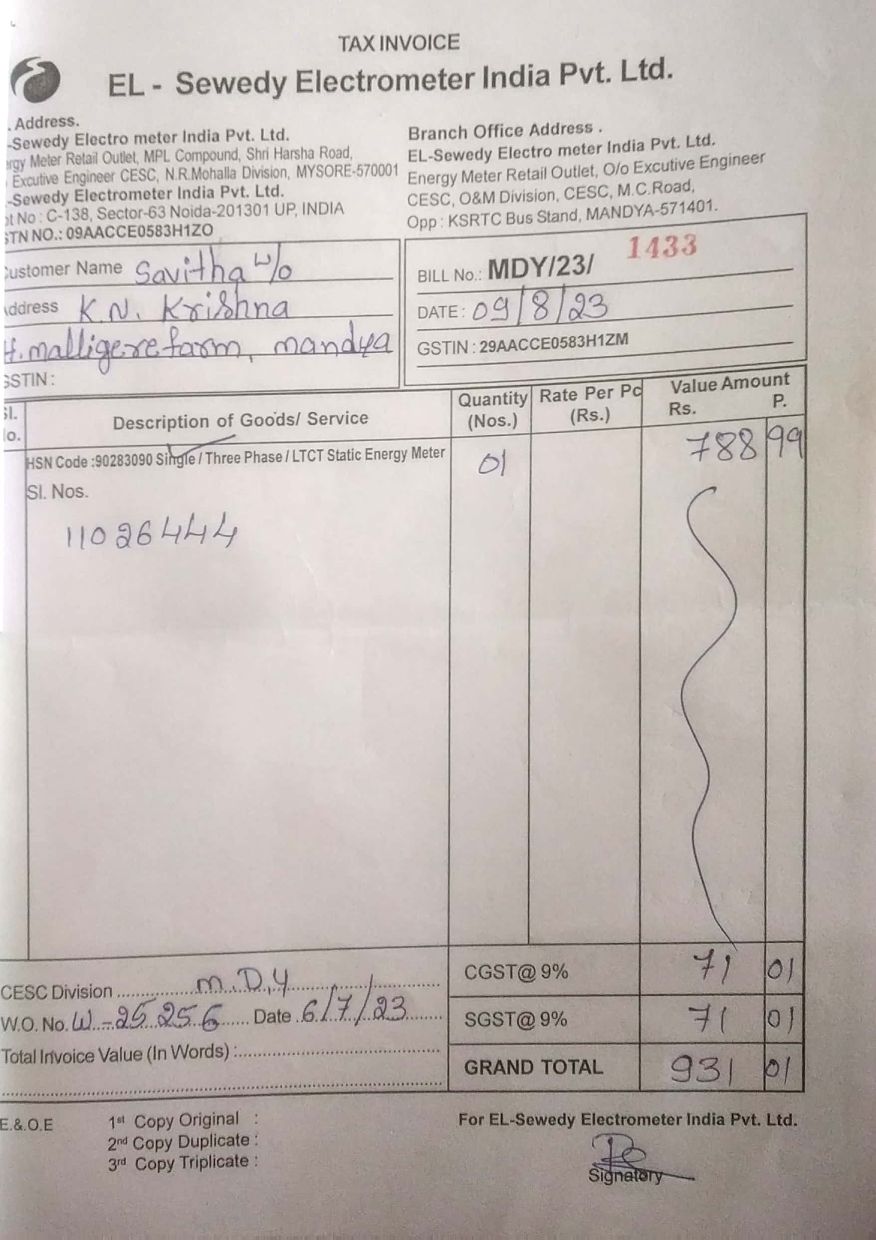 TAX INVOICE
EL - Sewedy Electrometer India Pvt. Ltd.
. Address.
-Sewedy Electro meter India Pvt. Ltd.
ergy Meter Retail Outlet, MPL Compound, Shri Harsha Road,
Excutive Engineer CESC, N.R.Mohalla Division, MYSORE-570001
-Sewedy Electrometer India Pvt. Ltd.
ot No : C-138, Sector-63 Noida-201301 UP, INDIA
STN NO.: 09AACCE0583H1ZO
Branch Office Address .
EL-Sewedy Electro meter India Pvt. Ltd.
Energy Meter Retail Outlet, O/o Excutive Engineer
CESC, O&M Division, CESC, M.C.Road,
Opp : KSRTC Bus Stand, MANDYA-571401.
Customer Name Savitha w/o
Address K.N. Krishna
H.malligere farm, mandya
GSTIN :
BILL No.: MDY/23/ 1433
DATE : 09/8/23
GSTIN : 29AACCE0583H1ZM
Sl. No. Description of Goods/ Service Quantity (Nos.) Rate Per Pc (Rs.) Value Amount Rs. P.
HSN Code :90283090 Single / Three Phase / LTCT Static Energy Meter 01 788 99
Sl. Nos.
11026444
CESC Division m.D,y
W.O. No. W-25256 Date 6/7/23
Total Invoice Value (In Words) :
CGST@ 9% 71 01
SGST@ 9% 71 01
GRAND TOTAL 931 01
E.&.O.E
1st Copy Original :
2nd Copy Duplicate :
3rd Copy Triplicate :
For EL-Sewedy Electrometer India Pvt. Ltd.
Signatory